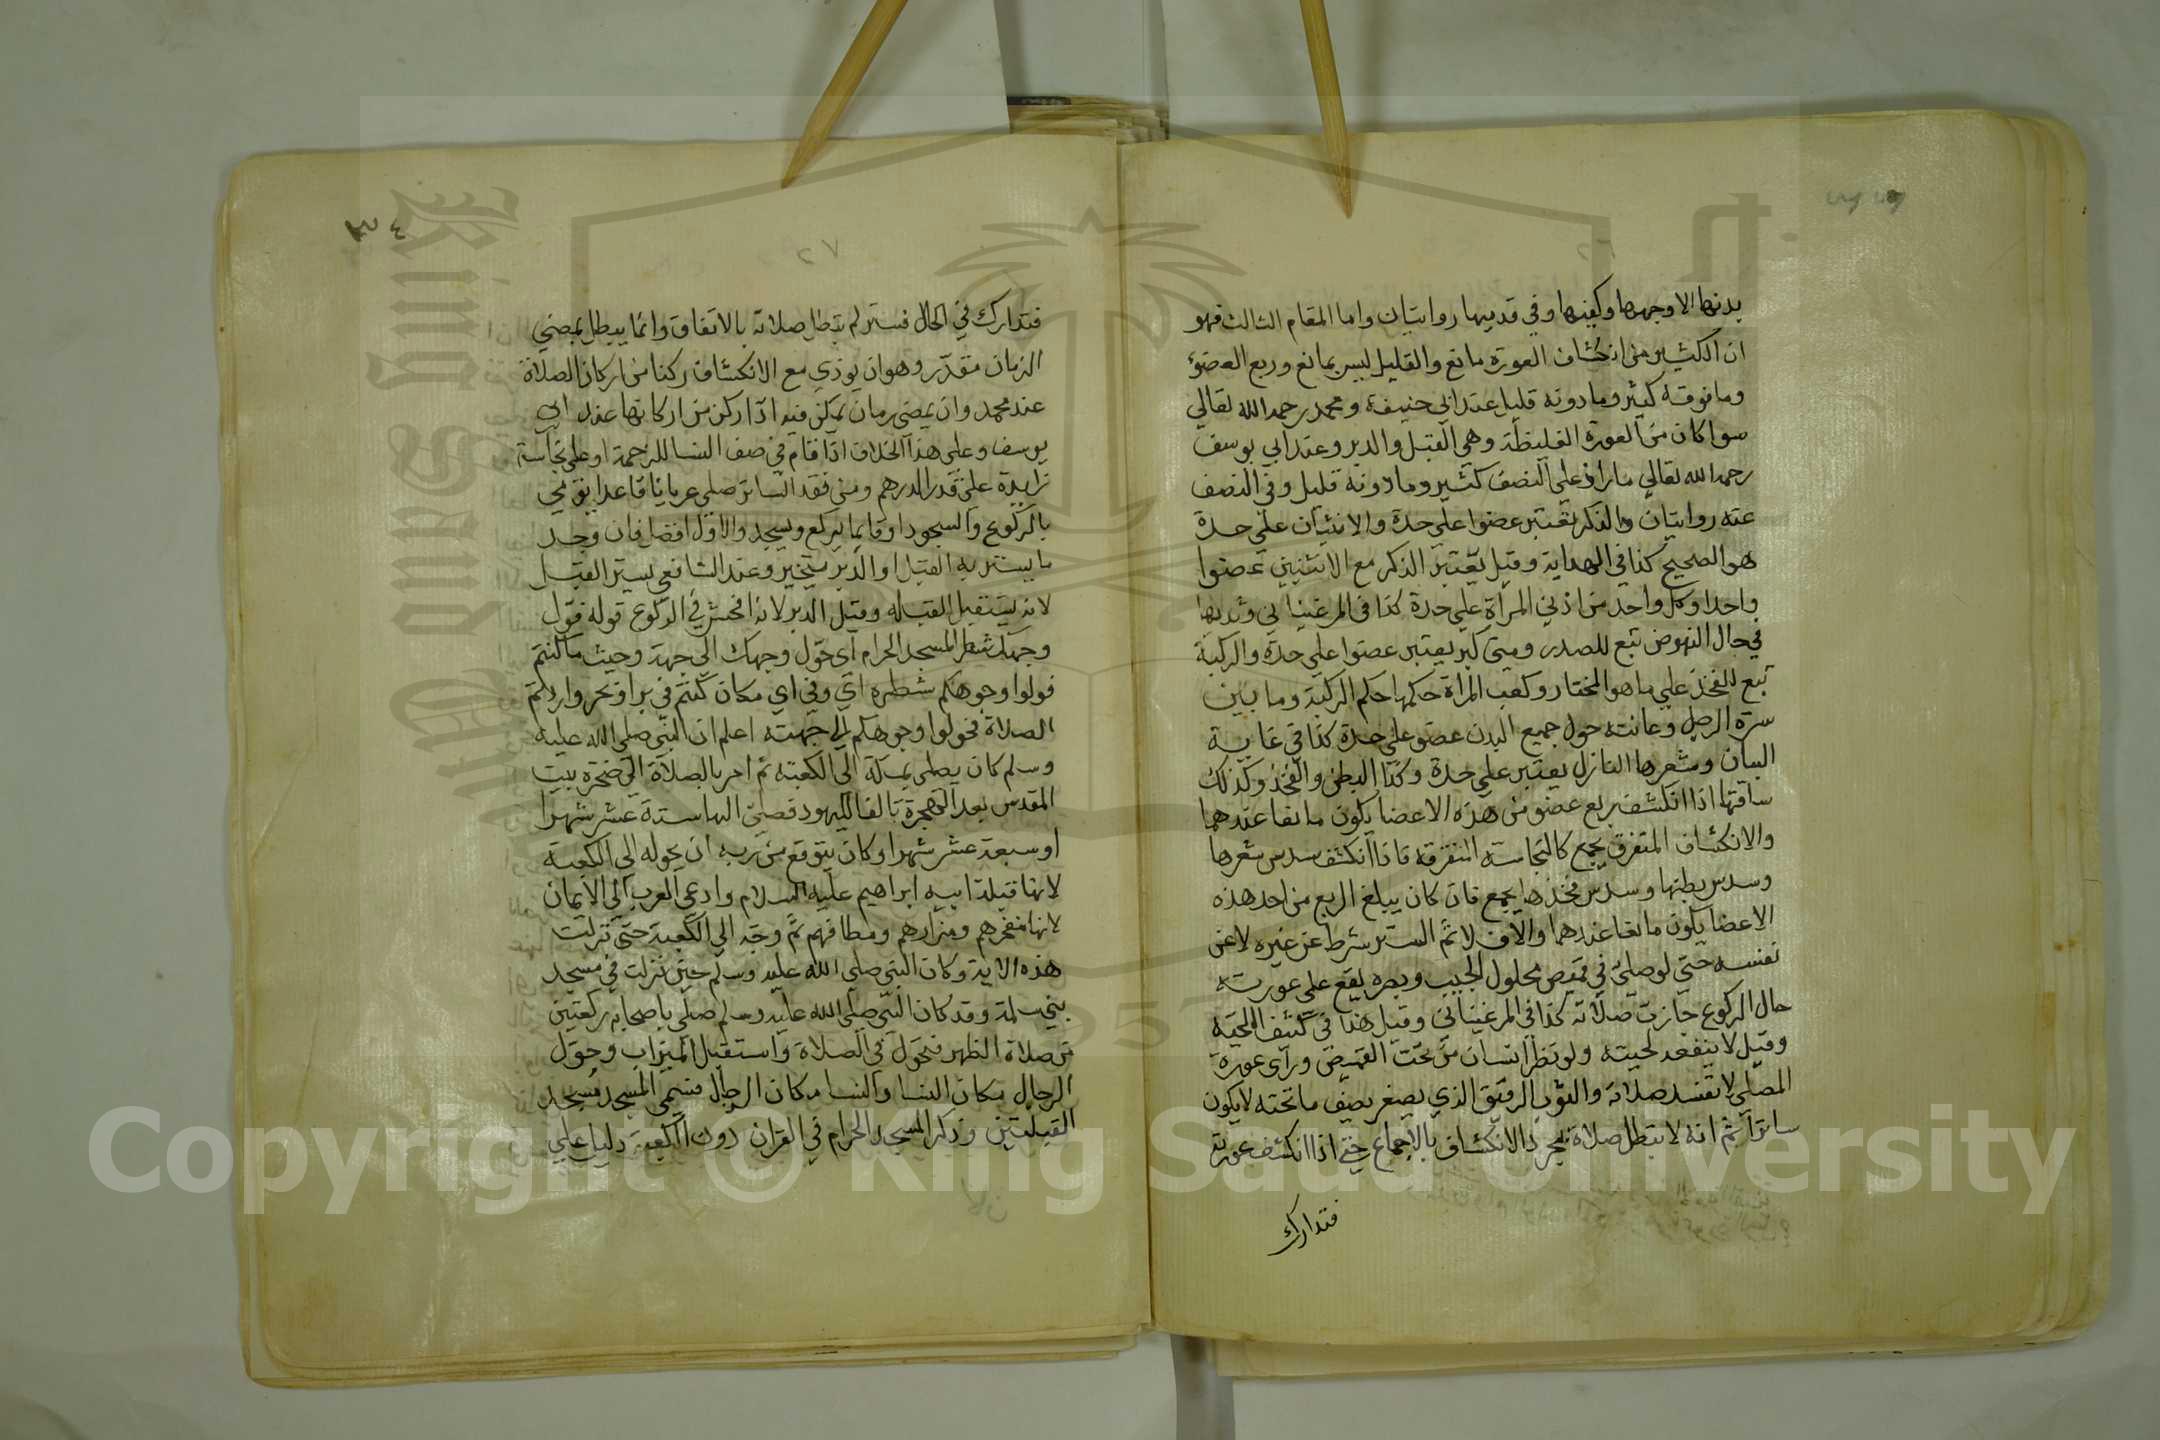 بدنها الا وجهها وكفيها وفي قدميها روايتان واما المقام الثالث فهو
ان الكثير من انكشاف العورة مانع والقليل ليس بمانع وربع العضو
وما فوقه كثير وما دونه قليل عند ابي حنيفة ومحمد رحمه الله تعالي
سوا كان من العورة الغليظة وهي القبل والدبر وعند ابي يوسف
رحمه الله تعالي ما زاد علي النصف كثير وما دونه قليل وفي النصف
عنه روايتان والذكر يعتبر عضوا علي حدة والانثيان علي حدة
هو الصحيح كذا في الهداية وقيل يعتبر الذكر مع الانثيين عضوا
واحدا وكل واحد من اذني المراة علي حدة كذا في المرغيناني وثديها
في حال النهوض تبع للصدر ومتي كبر يعتبر عضوا علي حدة والركبة
تبع للفخذ علي ما هو المختار وكعب المراة حكمها حكم الركبة وما بين
سرة الرجل وعانته حول جميع البدن عضو علي حدة كذا في غاية
البيان وشعرها النازل يعتبر علي حدة وكذا البطن والفخذ وكذلك
ساقها اذا انكشف ربع عضو من هذه الاعضا يكون مانعا عندهما
والانكشاف المتفرق يجمع كالنجاسة المتفرقة فاذا انكشف سدس شعرها
وسدس بطنها وسدس فخذها يجمع فان كان يبلغ الربع من احد هذه
الاعضا يكون مانعا عندهما والا فلا ثم الستر شرط عن غيره لا عن
نفسه حتي لو صلي في قميص محلول الجيب وبصره يقع علي عورته
حال الركوع جازت صلاته كذا في المرغيناني وقيل هذا في كثف اللحية
وقيل لا ينفعه لحيته ولو نظر انسان من تحت القميص وراي عورة
المصلي لا تفسد صلاته والثوب الرقيق الذي يصف ما تحته لا يكون
ساترا ثم انه لا يبطل صلاة بمجرد الانكشاف بالاجماع حتي اذا انكشف عورته
فتدارك
٣٤
٢٧
فتدارك في الحال فستر لم يبطل صلاته بالاتفاق وانما يبطل بمضي
الزمان مقدر وهو ان يوذي مع الانكشاف ركنا من اركان الصلاة
عند محمد وان يمضي زمان يمكن فيه اذا ركن من اركانها عند ابي
يوسف وعلي هذا الخلاف اذا قام في صف النسا للزحمة او علي نجاسة
زايدة علي قدر الدرهم ومن فقد الساتر صلي عريانا قاعدا يومي
بالركوع والسجود او قايما يركع ويسجد والاول افضل فان وجد
ما يستر به القبل او الدبر يتخير وعند الشافعي يستر القبل
لانه يستقبل القبله وقيل الدبر لانه افحش في الركوع قوله فول
وجهك شطر المسجد الحرام اي حول وجهك الي جهة وحيث ما كنتم
فولوا وجوهكم شطره اي وفي اي مكان كنتم في بر او بحر واردتم
الصلاة فحولوا وجوهكم الي جهته اعلم ان النبي صلي الله عليه
وسلم كان يصلي بمكة الي الكعبة ثم امر بالصلاة الي صخرة بيت
المقدس بعد الهجرة تالفا لليهود فصلي اليها ستة عشر شهرا
او سبعة عشر شهرا وكان يتوقع من ربه ان يحوله الي الكعبة
لانها قبلة ابيه ابراهيم عليه السلام وادعي العرب الي الايمان
لانها مفخرهم ومزارهم ومطافهم ثم وجه الي الكعبة حتي نزلت
هذه الاية وكان النبي صلي الله عليه وسلم حين نزلت في مسجد
بني سلمة وقد كان النبي صلي الله عليه وسلم صلي باصحابه ركعتين
من صلاة الظهر فتحول في الصلاة واستقبل الميزاب وحول
الرجال مكان النسا والنسا مكان الرجال فسمي المسجد مسجد
القبلتين وذكر المسجد الحرام في القران دون الكعبة دليل علي
Copyright © King Saud University
King Saud University
1957